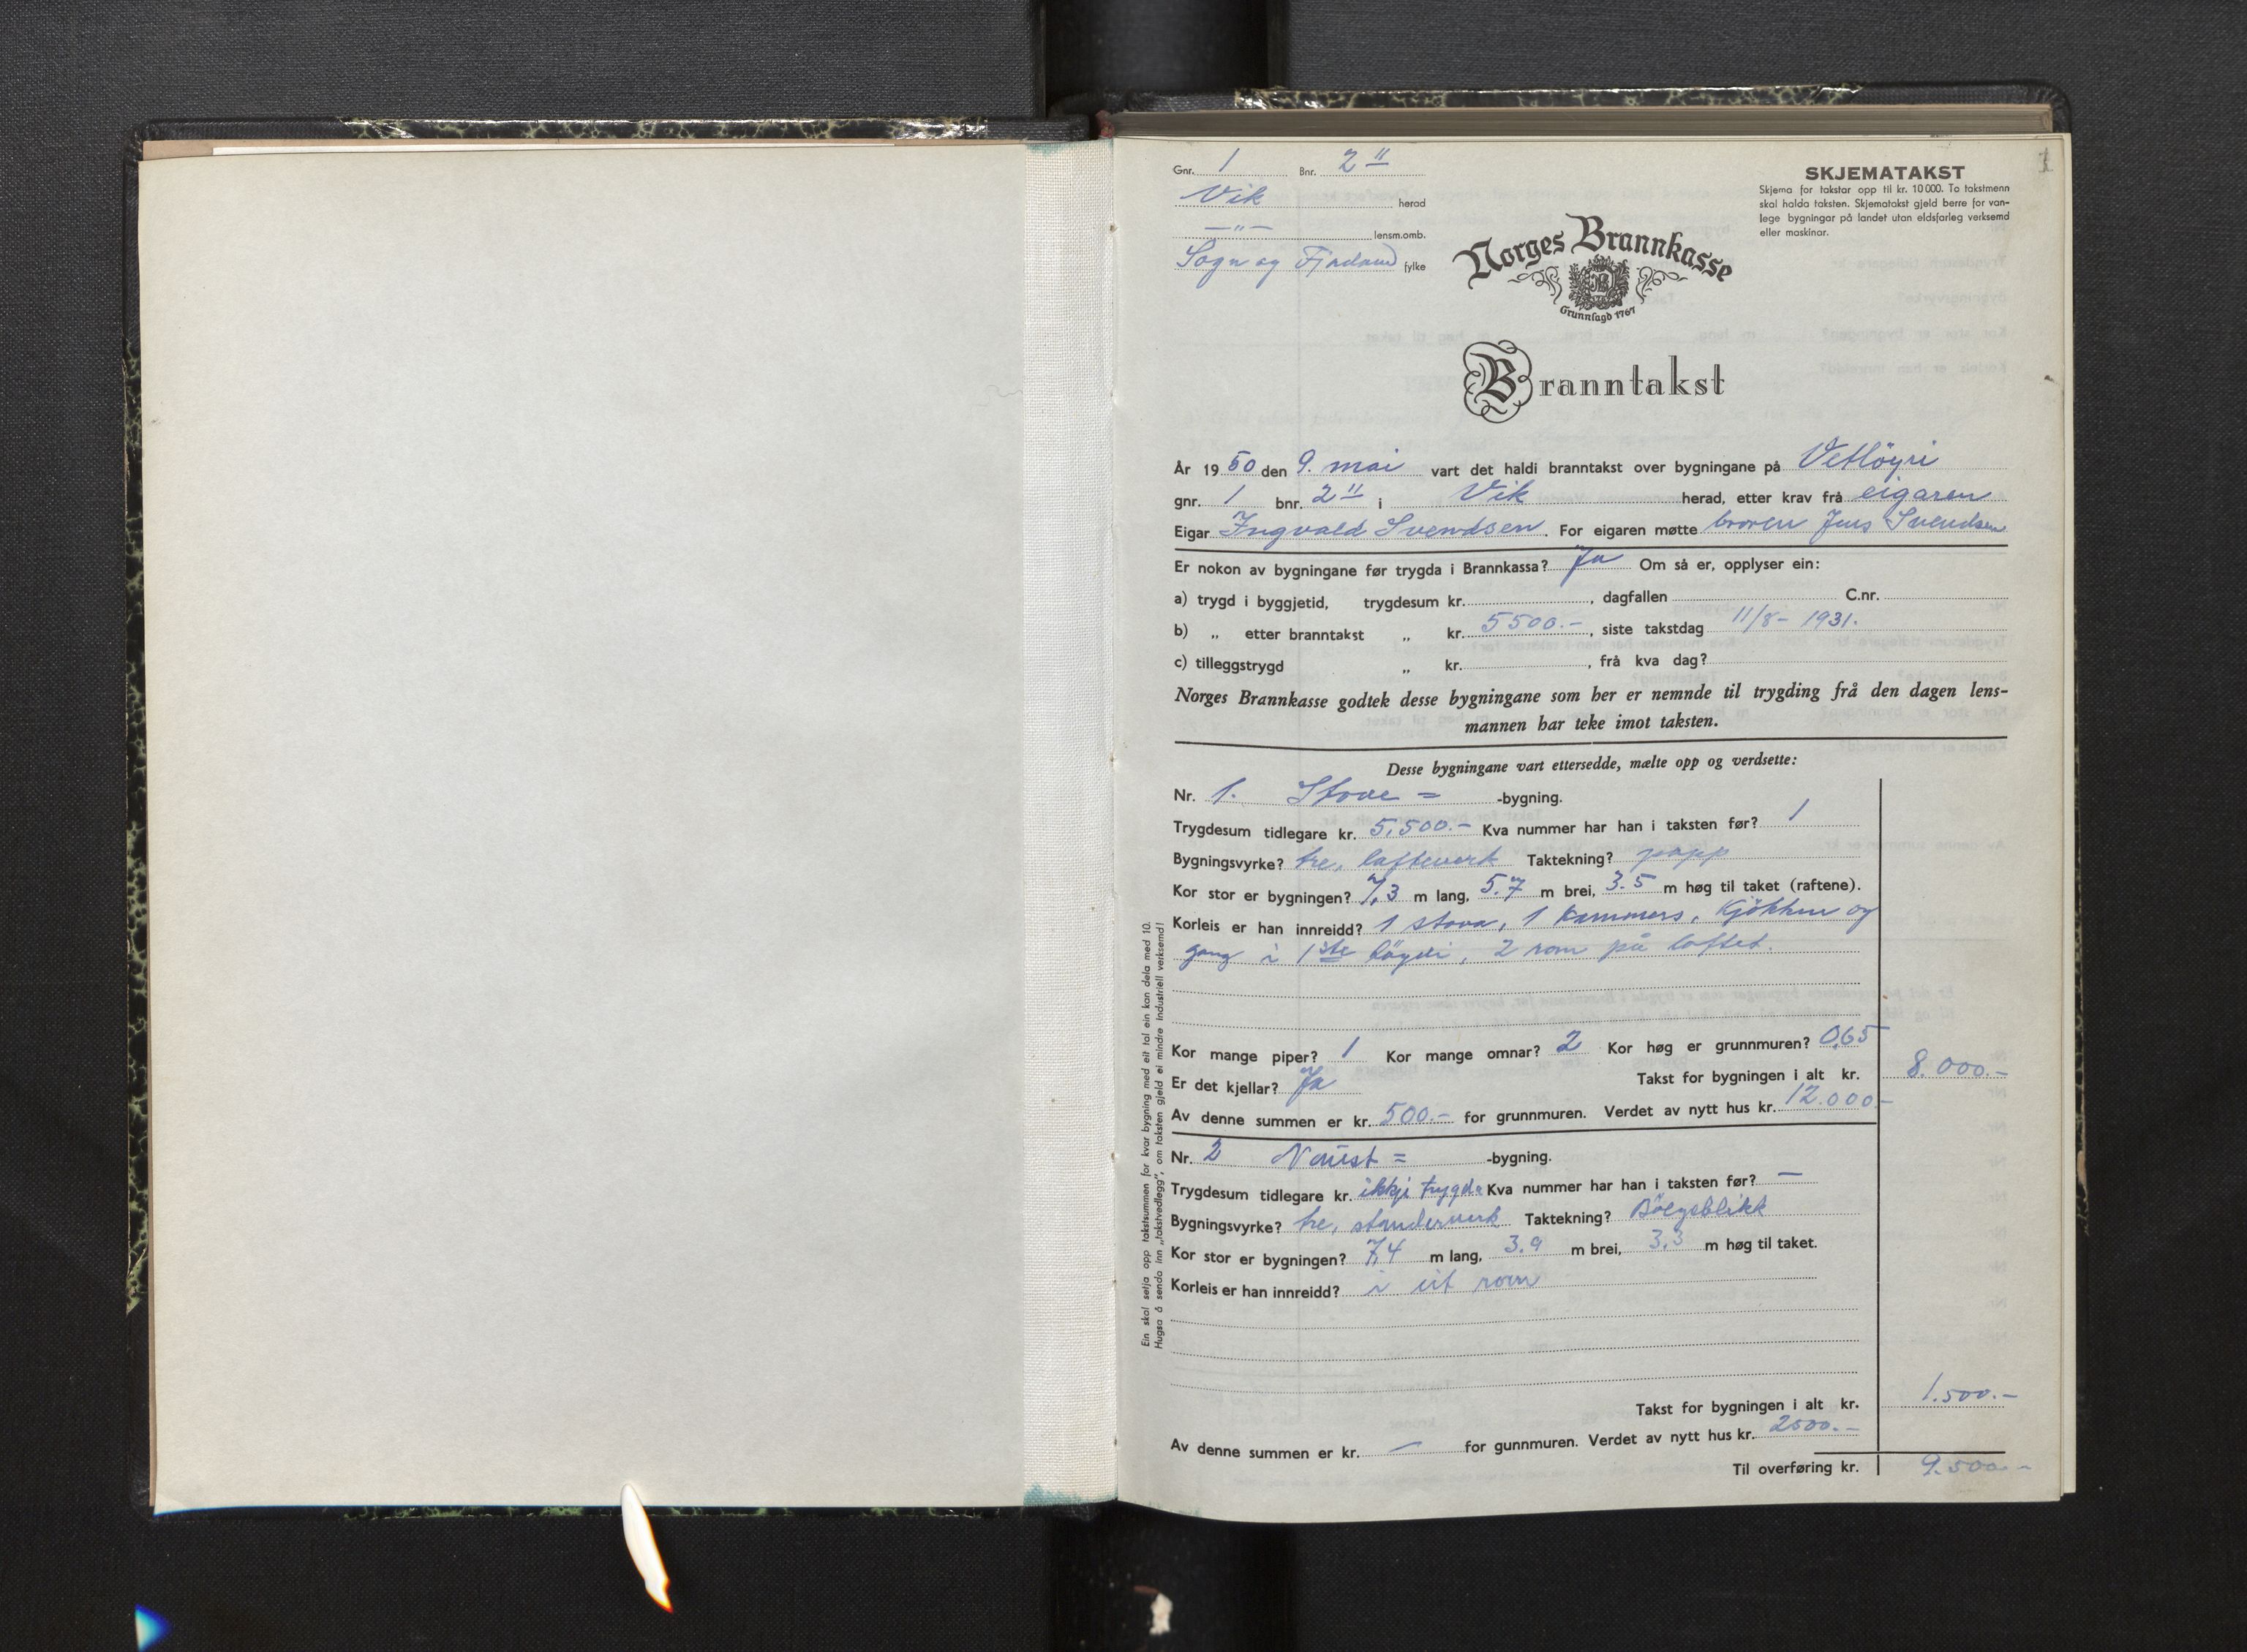 1
Gnr. 1 Bnr. 2 "
Vik herad
—"— lensm.omb.
Sogn og Fjordane fylke
SKJEMATAKST
Skjema for takstar opp til kr. 10 000. To takstmenn
skal halda taksten. Skjematakst gjeld berre for van-
lege bygningar på landet utan eldsfarleg verksemd
eller maskinar.
Norges Brannkasse
Grunnlagd 1767
Branntakst
År 1950 den 9. mai vart det haldi branntakst over bygningane på Vetløyri
gnr. 1 bnr. 2 " i Vik herad, etter krav frå eigaren
Eigar Ingvald Svendsen. For eigaren møtte broren Jens Svendsen
Er nokon av bygningane før trygda i Brannkassa? Ja Om så er, opplyser ein:
a) trygd i byggjetid, trygdesum kr. , dagfallen C.nr.
b) „ etter branntakst „ kr. 5500.-, siste takstdag 11/8- 1931.
c) tilleggstrygd „ kr. , frå kva dag?
Norges Brannkasse godtek desse bygningane som her er nemnde til trygding frå den dagen lens-
mannen har teke imot taksten.
Desse bygningane vart ettersedde, mælte opp og verdsette:
Nr. 1. Stove = -bygning.
Trygdesum tidlegare kr. 5.500.- Kva nummer har han i taksten før? 1
Bygningsvyrke? tre, lafteverk Taktekning? papp
Kor stor er bygningen? 7,3 m lang, 5.7 m brei, 3.5 m høg til taket (raftene).
Korleis er han innreidd? 1 stova, 1 kammers, kjökken og
gang i 1ste høgdi, 2 rom på loftet.
Kor mange piper? 1 Kor mange omnar? 2 Kor høg er grunnmuren? 0,65
Er det kjellar? Ja Takst for bygningen i alt kr. 8.000.-
Av denne summen er kr. 500.- for grunnmuren. Verdet av nytt hus kr. 12.000.-
Nr. 2 Naust = -bygning.
Trygdesum tidlegare kr. ikkje trygda Kva nummer har han i taksten før? —
Bygningsvyrke? tre, stenderverk Taktekning? Bölgeblikk
Kor stor er bygningen? 7,4 m lang, 3.9 m brei, 3,3 m høg til taket.
Korleis er han innreidd? i eit rom
Takst for bygningen i alt kr. 1.500.-
Av denne summen er kr. — for gunnmuren. Verdet av nytt hus kr. 2500.-
Til overføring kr. 9.500.-
Ein skal setja opp takstsummen for kvar bygning med eit tal ein kan dela med 10.
Hugsa å senda inn „takstvedlegg“, om taksten gjeld ei mindre industriell verksemd!